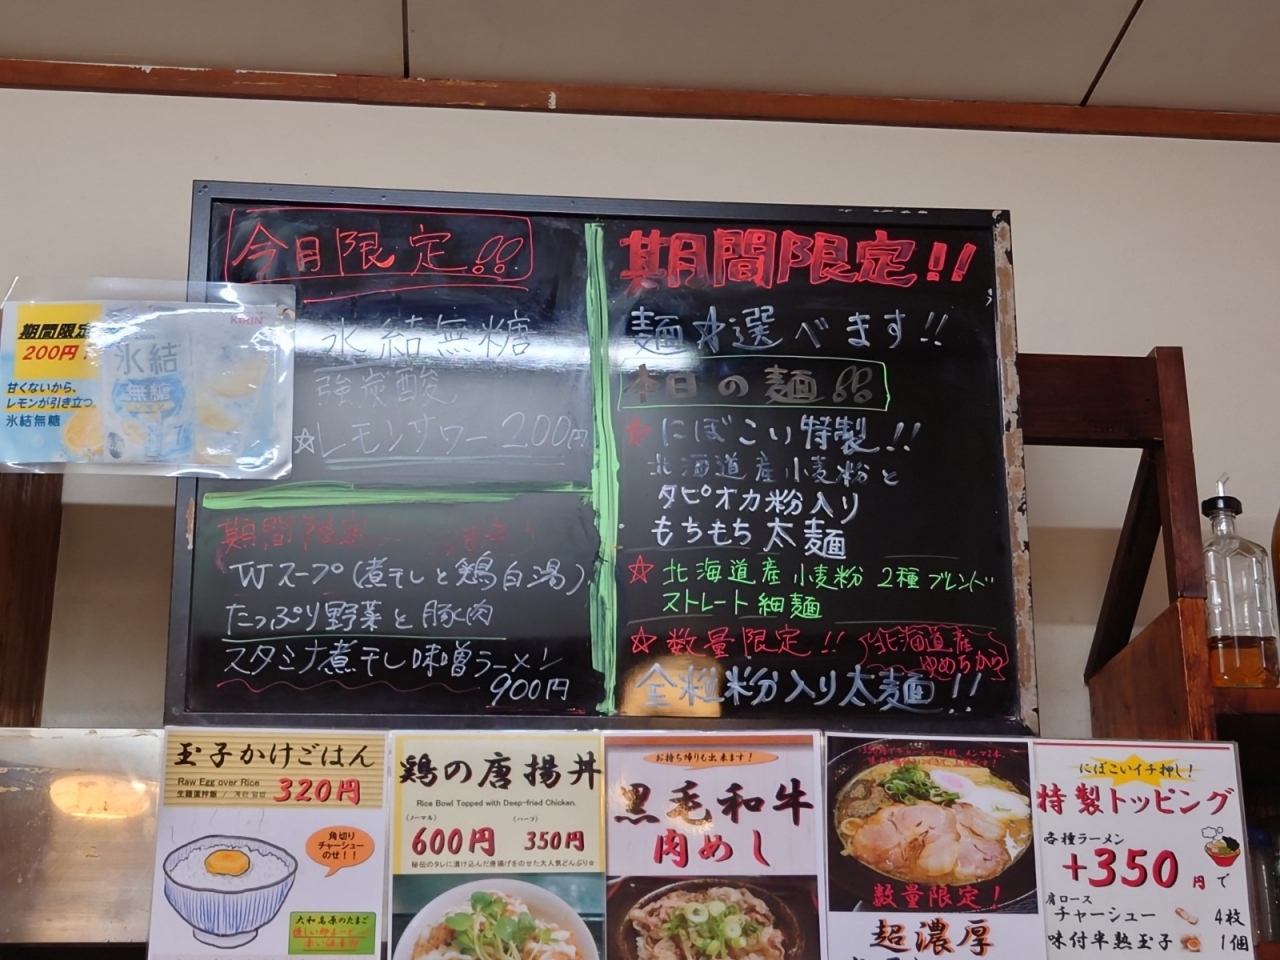 今月限定!!
氷結無糖
強炭酸
☆レモンサワー 200円
期間限定
Wスープ(煮干しと鶏白湯)
たっぷり野菜と豚肉
スタミナ煮干し味噌ラーメン
900円
期間限定!!
麺が選べます!!
本日の麺!!
☆にぼこい特製!!
北海道産小麦粉と
タピオカ粉入り
もちもち太麺
☆北海道産小麦粉2種ブレンド
ストレート細麺
☆数量限定!! 北海道産
ゆめちから
全粒粉入り太麺!!
KIRIN
期間限定
200円
氷結
無糖
甘くないから、
レモンが引き立つ。
氷結無糖
玉子かけごはん
Raw Egg over Rice
320円
角切り
チャーシュー
のせ!!
大和高原のたまご
鶏の唐揚丼
Rice Bowl Topped with Deep-fried Chicken.
(ノーマル) (ハーフ)
600円 350円
秘伝のタレに漬け込んだ唐揚げをのせた大人気どんぶり☆
お持ち帰りも出来ます!
黒毛和牛
肉めし
数量限定!
超濃厚
にぼこいイチ押し!
特製トッピング
各種ラーメン
+350円で
肩ロース
チャーシュー 4枚
味付半熟玉子 1個